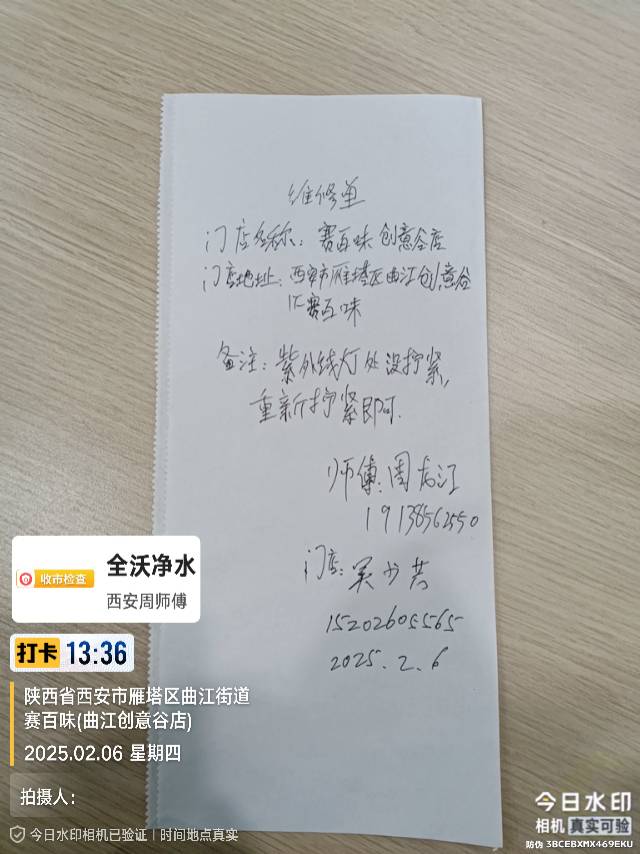 维修单
门店名称：赛百味创意谷店
门店地址：西安市雁塔区曲江创意谷
赛百味
备注：紫外线灯处没拧紧，
重新拧紧即可.
师傅：周龙江
19138562550
门店：吴少芳
15202605565
2025.2.6
收市检查
全沃净水
西安周师傅
打卡 13:36
陕西省西安市雁塔区曲江街道
赛百味(曲江创意谷店)
2025.02.06 星期四
拍摄人：
今日水印相机已验证 | 时间地点真实
今日水印
相机 真实可验
防伪 3BCEBXMX469EKU